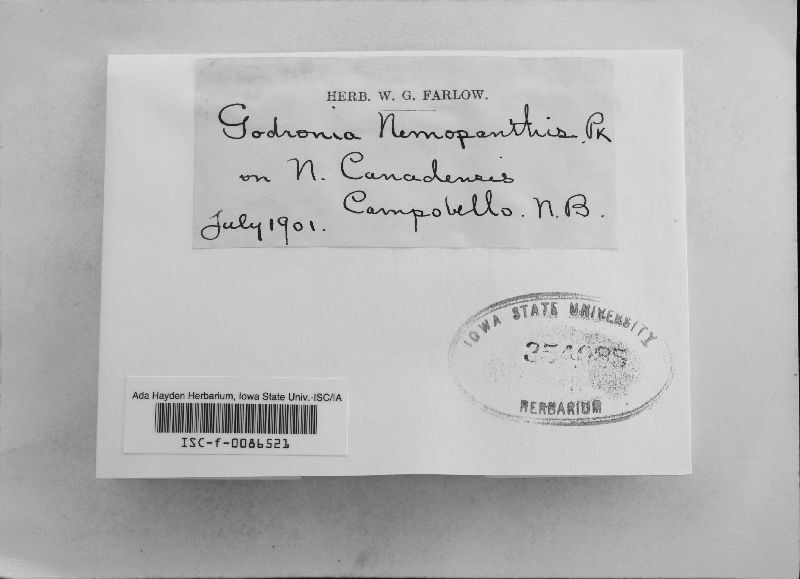 HERB. W. G. FARLOW.
Godronia Nemopanthis, Pk
on N. Canadensis
Campobello. N. B.
July 1901.
IOWA STATE UNIVERSITY
HERBARIUM
Ada Hayden Herbarium, Iowa State Univ.-ISC/IA
ISC-f-0086521